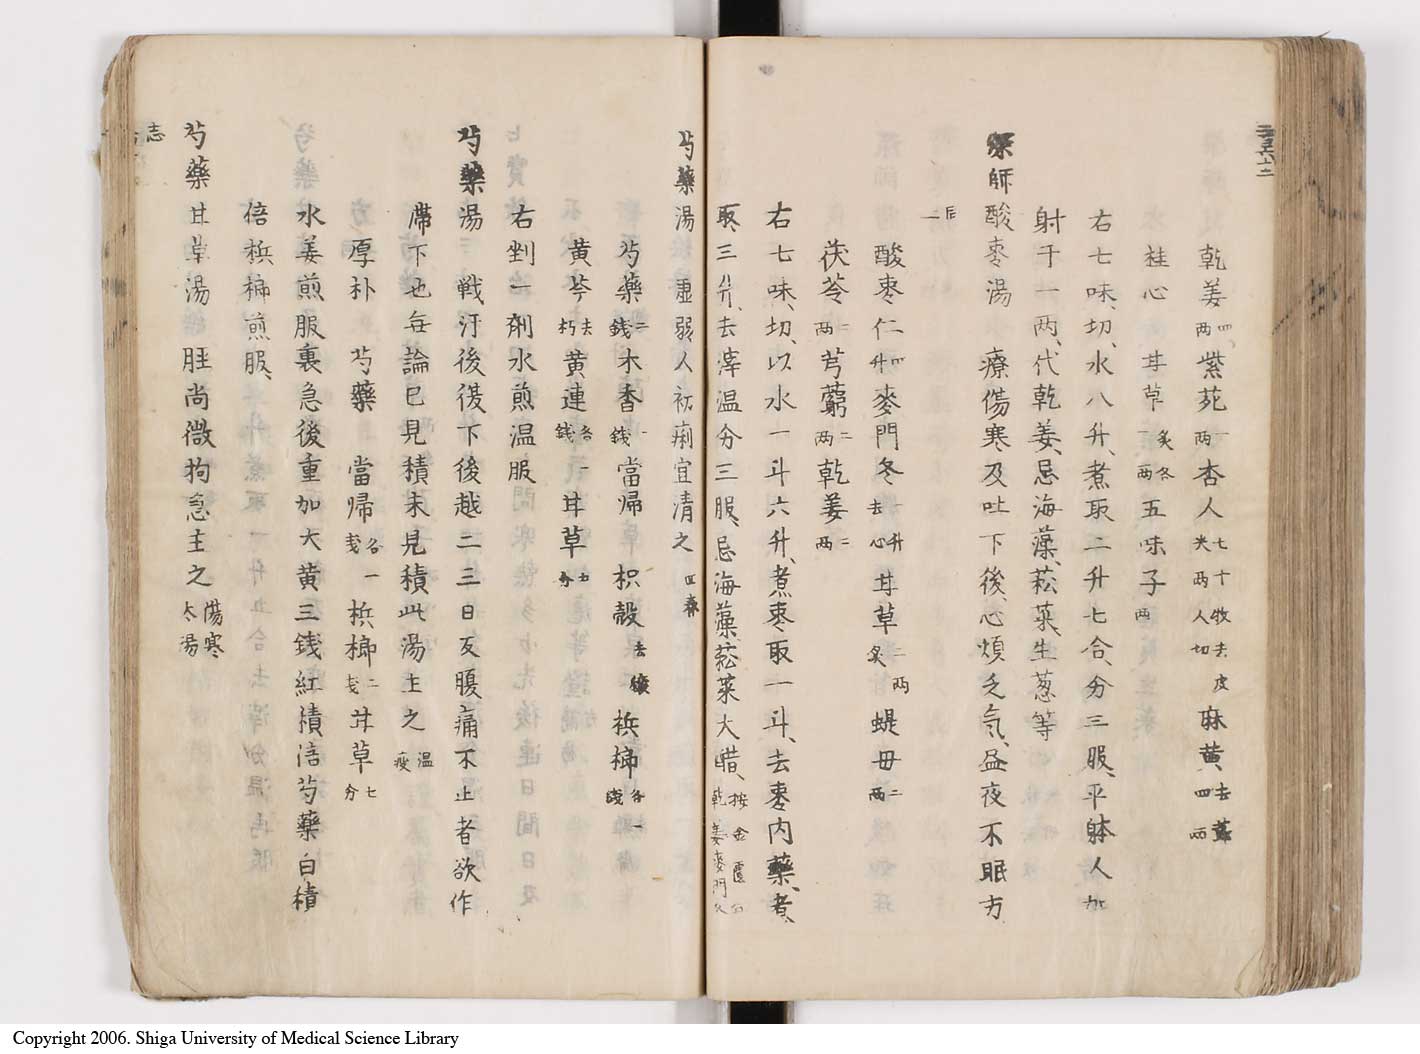 乾姜四両紫苑一両杏人七十牧去皮尖両人切麻黄去莭四両
桂心甘草炙各一両五味子両
右七味、切、水八升、煮取二升七合、分三服、平躰人加
射干一両、代乾姜、忌海藻、菘菜、生葱等
深師酸棗湯療傷寒及吐下後、心煩乏氣、昼夜不眠方
酸棗仁四升麥門冬一升去心甘草二両炙蝭母二両
茯苓二両芎藭二両乾姜二両
右七味、切、以水一斗六升、煮棗取一斗、去棗内藥、煮、
取三升、去滓温分三服、忌海藻、菘菜大醋、按金匱
芍藥湯虚弱人痢宜清之
芍藥二銭木香一銭當帰枳殻去穰梹榔各一銭
黄芩去朽黄連各一銭甘草五分
右剉一劑水煎温服
芍藥湯戦汗後復下後越二三日反腹痛不止者欲作
滞下也每論已見積未見積此湯主之温疫
厚朴芍藥當帰各一戋梹榔二戋甘草七分
水姜煎服裏急後重加大黄三銭紅積倍芍藥白積
倍梹榔煎服、
芍藥甘草湯脛尚微拘急主之傷寒太陽
志
Copyright 2006. Shiga University of Medical Science Library